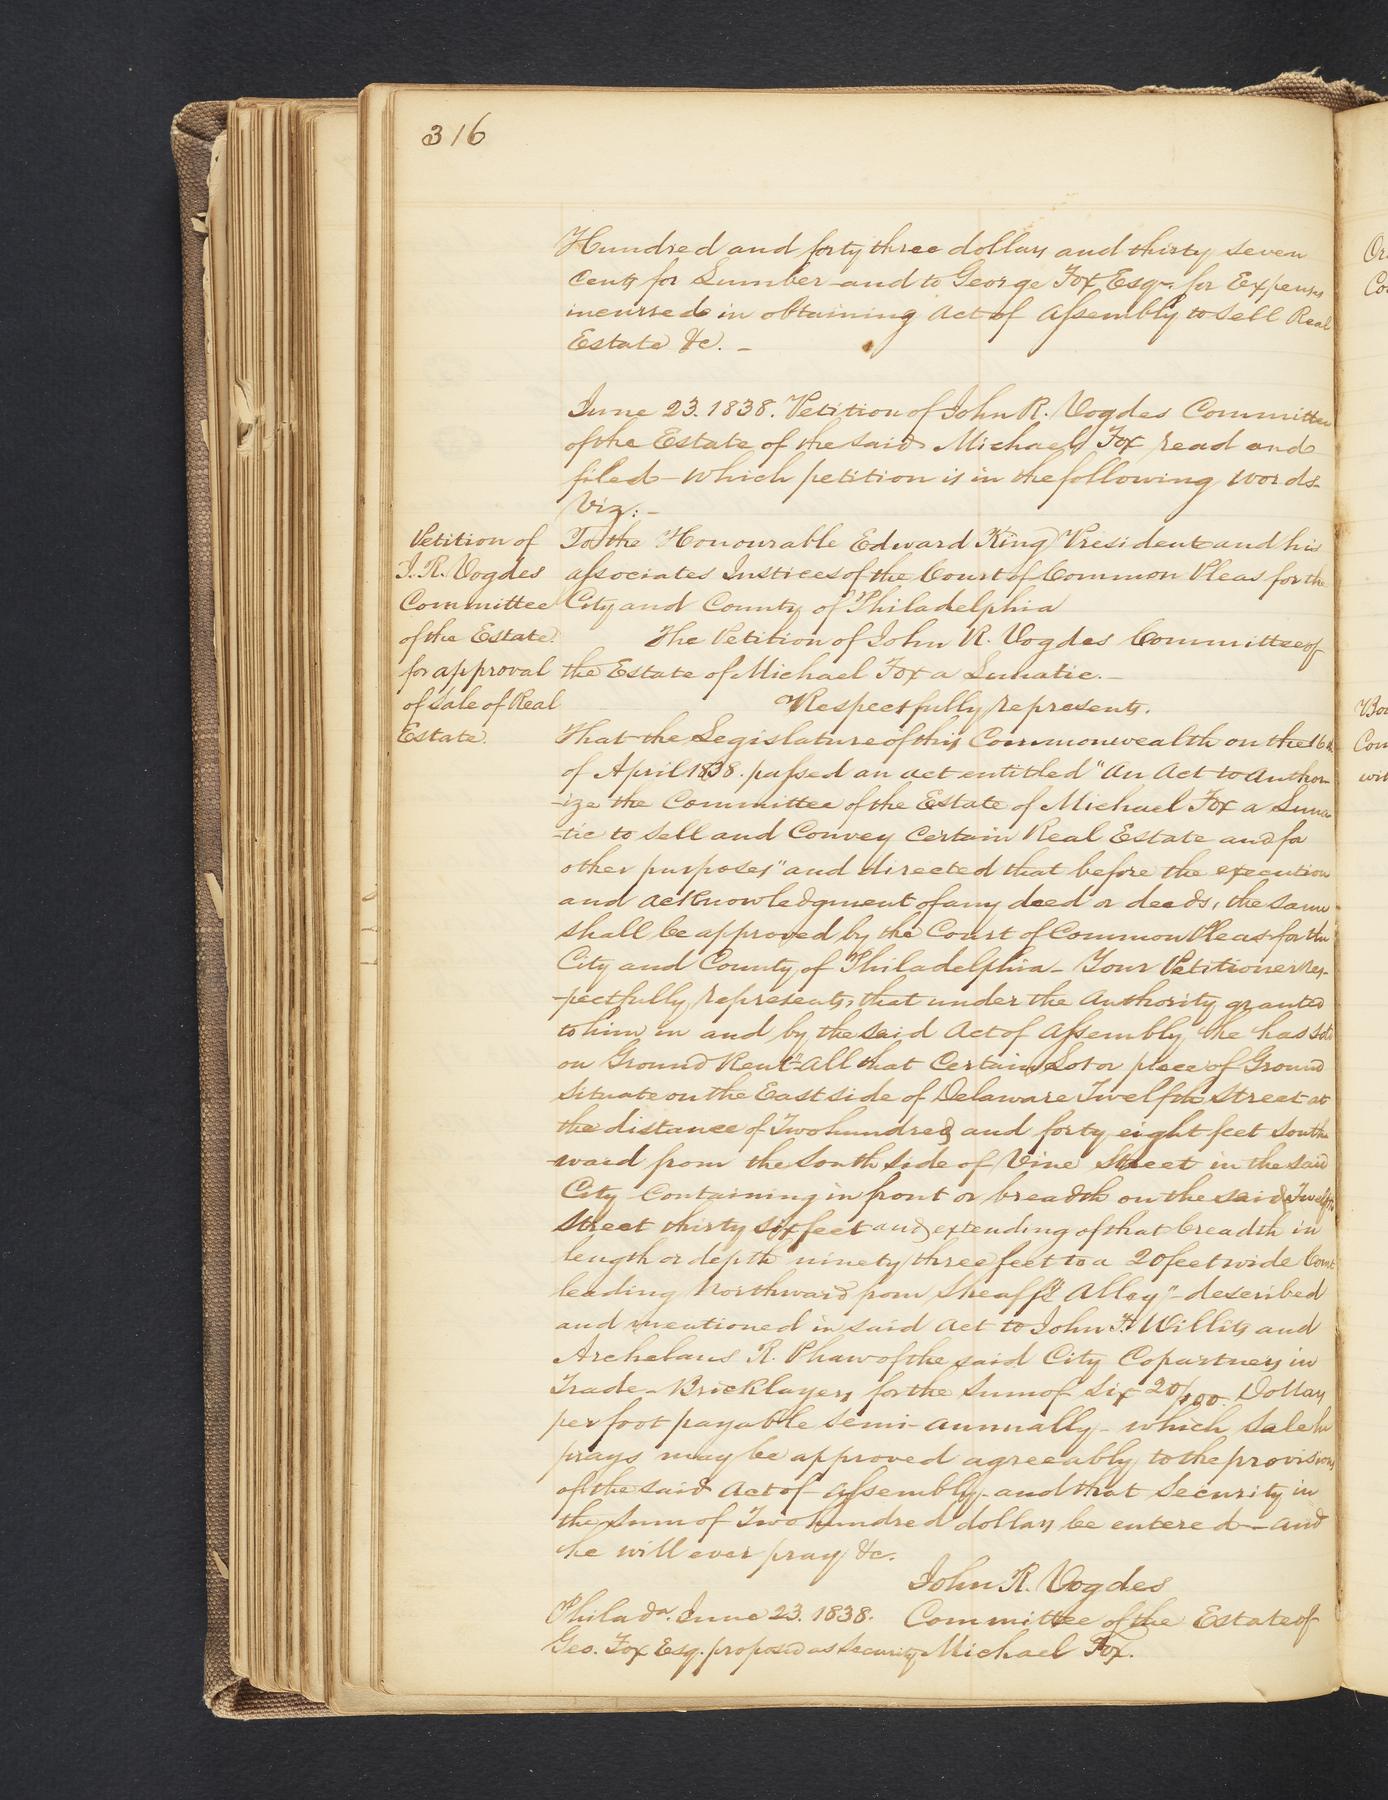 316
Hundred and forty three dollars and thirty seven
Cents for Lumber and to George Fox Esqr. for Expenses
incurred in obtaining Act of Assembly to Sell Real
Estate &c. -
June 23. 1838. Petition of John R. Vogdes Committee
of the Estate of the said Michael Fox read and
filed - which petition is in the following words
Viz: -
Petition of
J. R. Vogdes
Committee
of the Estate
for approval
of Sale of Real
Estate.
To the Honourable Edward King President and his
associates Justices of the Court of Common Pleas for the
City and County of Philadelphia
The Petition of John R. Vogdes Committee of
the Estate of Michael Fox a Lunatic. -
Respectfully represents.
That the Legislature of this Commonwealth on the 16th
of April 1838. passed an act entitled "An Act to Author-
-ize the Committee of the Estate of Michael Fox a Luna-
-tic to Sell and Convey Certain Real Estate and for
other purposes" and directed that before the execution
and acknowledgment of any deed or deeds, the same
shall be approved by the Court of Common Pleas for the
City and County of Philadelphia - Your Petitioner res-
-pectfully represents, that under the Authority granted
to him in and by the said Act of Assembly he has sold
on Ground Rent "All that Certain Lot or piece of Ground
Situate on the East side of Delaware Twelfth Street at
the distance of Two hundred and forty eight feet South-
-ward from the South side of Vine Street in the said
City Containing in front or breadth on the said Twelfth
Street thirty six feet and extending of that breadth in
length or depth ninety three feet to a 20 feet wide Court
leading Northward from Sheaff's Alley" - described
and mentioned in said Act to John H Willits and
Archelaus R. Phaw of the said City Copartners in
Trade - Bricklayers for the Sum of Six 20/100 Dollars
per foot payable Semi-annually - which Sale he
prays may be approved agreeably to the provisions
of the said Act of Assembly - and that Security in
the Sum of Two hundred dollars be entered - and
he will ever pray &c.
John R. Vogdes
Philada. June 23. 1838. Committee of the Estate of
Geo. Fox Esq. proposed as Security Michael Fox.